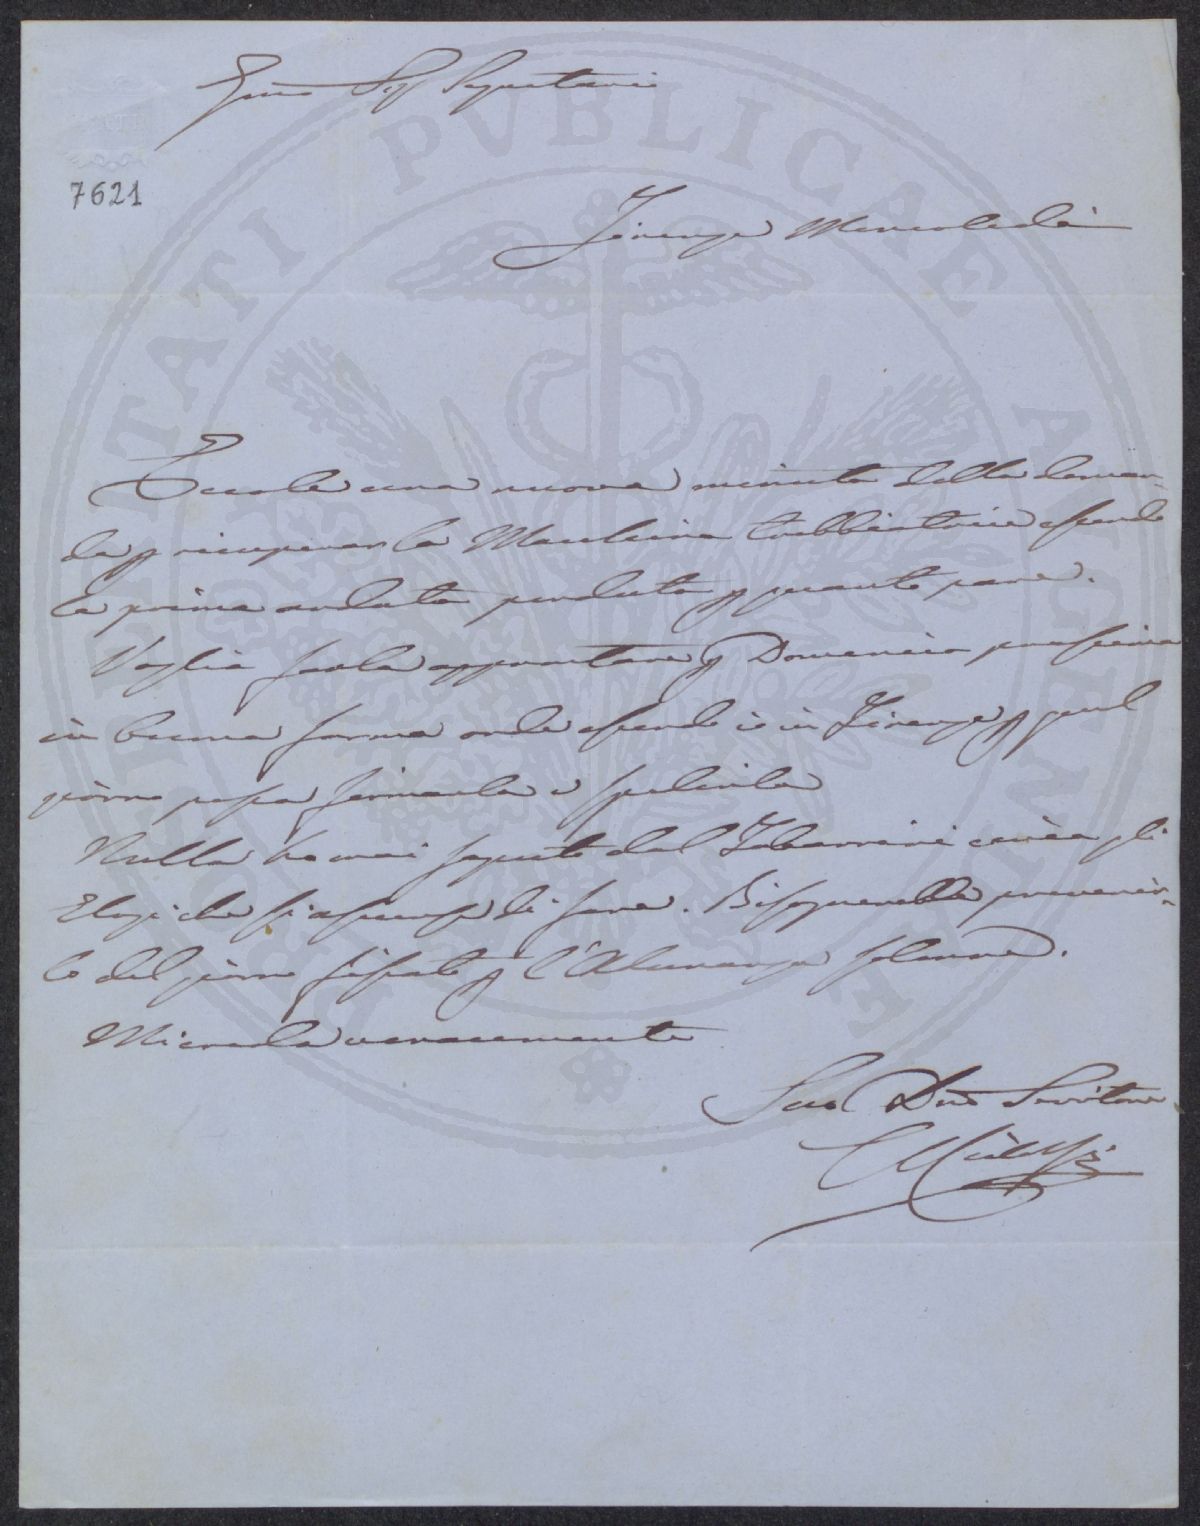 Egmo Sigr Segretario
7621
Firenze Mercoledì
Eccole una nuova minuta della doman-
da p ricuperar la Macchina trebbiatrice essendo
la prima andata perduta p quanto pare.
Voglia farla approntare p Domenica prossima
in buona forma onde essendo io in Firenze p quel
giorno possa firmarla e spedirla
Nulla ho mai saputo dal Tabarrini circa gli
Elogi che si assunse di fare. Bisognerebbe prevenir-
lo del giorno fissato p l'Adunanza solenne.
Mi creda veracemente
Suo Dmo Servitore
PROSPERITATI PVBLICAE AVGENDAE